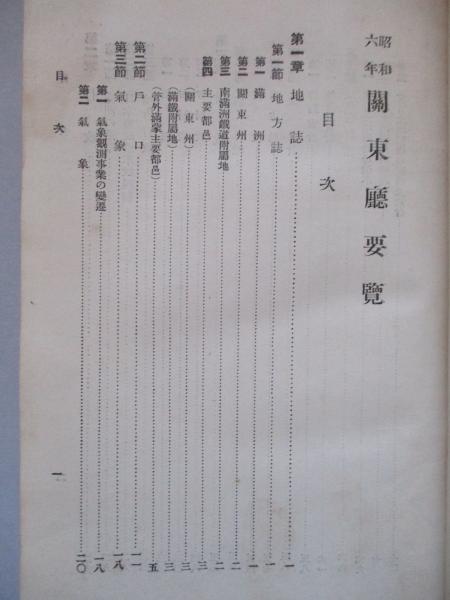 昭和六年 關東廳要覽
目次
第一章 地誌……一
第一節 地方誌……一
第一 滿洲……一
第二 關東州……二
第三 南滿洲鐵道附屬地……二
第四 主要都邑……三
(關東州)……三
(滿鐵附屬地)……三
(管外滿蒙主要都邑)……五
第二節 戶口……一一
第三節 氣象……一八
第一 氣象觀測事業の變遷……一八
第二 氣象……二〇
目次
一